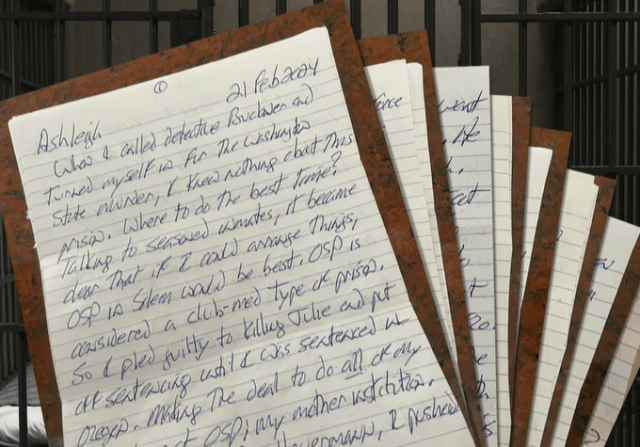 ①
21 Feb 2024
Ashleigh
When I called detective Buckner and
turned myself in for the Washington
State murder, I knew nothing about this
prison. Where to do the best time?
Talking to seasoned inmates, it became
clear that if I could arrange things,
OSP in Salem would be best. OSP is
considered a club-med type of prison.
So I pled guilty to killing Julie and put
off sentencing until I was sentenced in
Oregon. Making the deal to do all of my
OSP; my mother institution.
I pushed